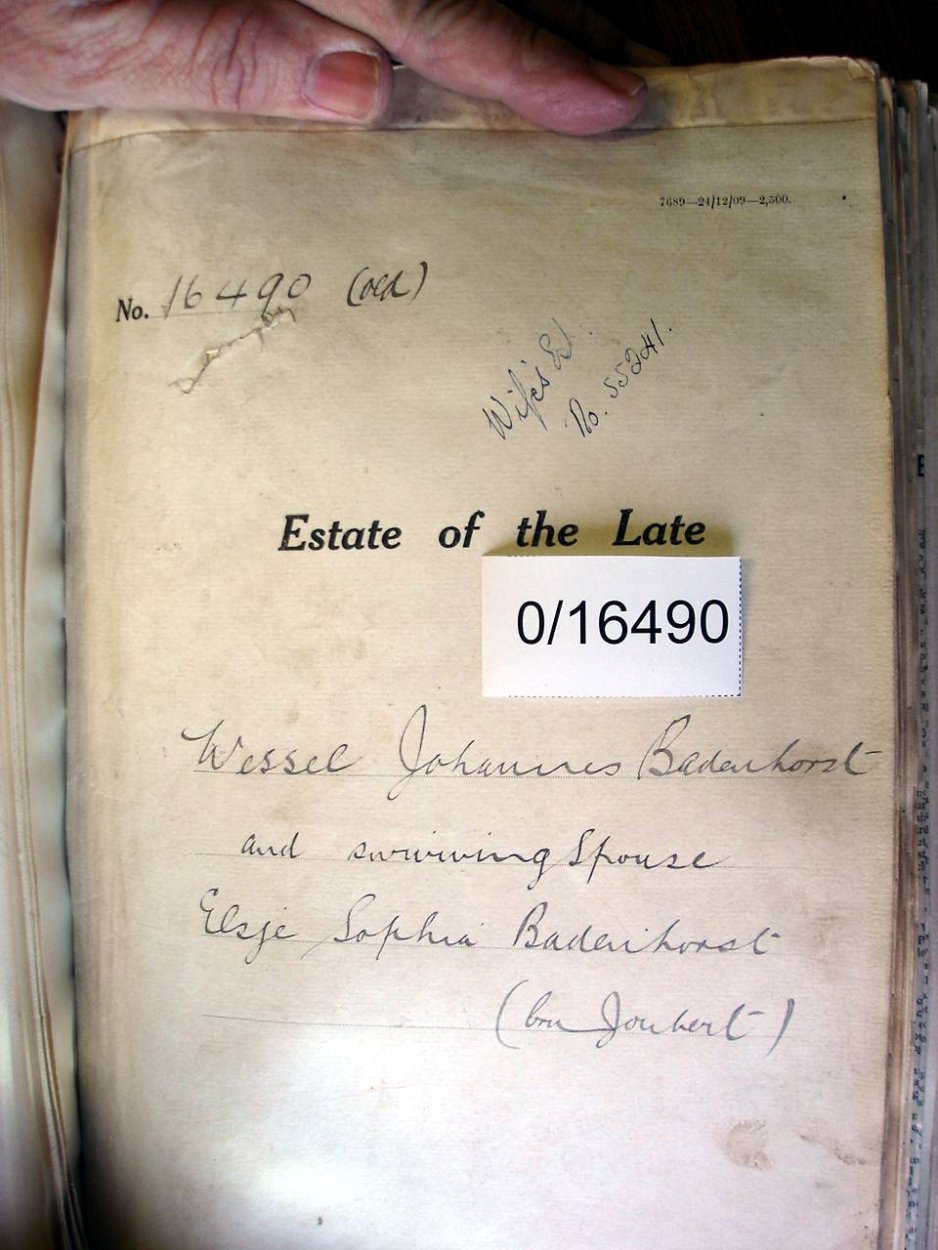 7689—24/12/09—2,500.
No. 16490 (old)
Wife's Est.
No. 55241.
Estate of the Late
0/16490
Wessel Johannes Badenhorst
and surviving Spouse
Elsje Sophia Badenhorst
(bn Joubert)